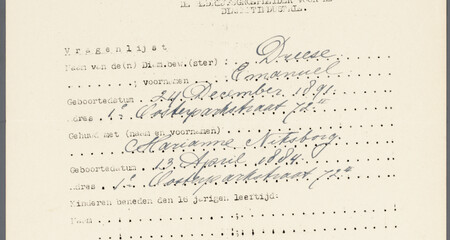 DE
DIAMANTINDUSTRIE.
Vragenlijst
Naam van de(n) Diam.bew.(ster) : Druese
; voornamen Emanuel
Geboortedatum 24 December 1891.
adres 1e Oosterparkstraat 72III
Gehuwd met (naam en voornamen)
Marianne Niksborg.
Geboortedatum 13 April 1884.
adres 1e Oosterparkstraat 72III
Kinderen beneden den 16 jarigen leeftijd:
Naam